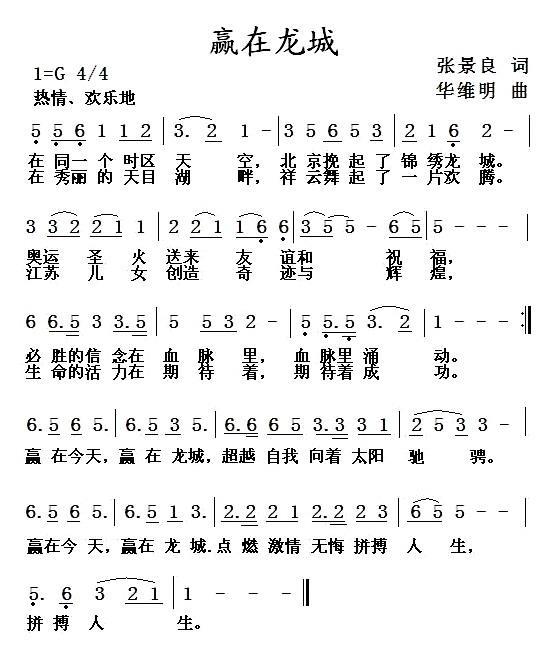 赢在龙城
1=G 4/4
张景良 词
热情、欢乐地
华维明 曲
5 5 6 1 1 2 | 3. 2 1 - | 3 5 6 5 3 | 2 1 6 2 - |
在 同一 个 时区 天 空, 北 京挽 起 了 锦 绣龙 城。
在 秀丽 的 天目 湖 畔, 祥 云舞 起 了 一 片欢 腾。
3 3 2 2 1 1 | 2 2 1 1 6 6 | 3 5 5 - 6 5 | 5 - - - |
奥运 圣 火 送来 友 谊和 祝 福,
江苏 儿 女 创造 奇 迹与 辉 煌,
6 6.5 3 3.5 | 5 5 5.3 2 - | 5 5.5.5 3. 2 | 1 - - - :‖
必 胜的信 念在 血 脉 里, 血 脉里 涌 动。
生 命的活 力在 期 待 着, 期 待着 成 功。
6.5 6 5. | 6.5 1 3. | 6.6 6 5 3.3 3 1 | 2 5 3 3 - |
赢 在今天, 赢 在 龙城, 超越 自我 向着 太阳 驰 骋。
6.5 6 5. | 6.5 1 3. | 2.2 2 1 2.2 2 3 | 6 5 5 - - |
赢在今 天, 赢在 龙 城.点 燃 激情 无悔 拼搏 人 生,
5. 6 3 2 1 | 1 - - - ‖
拼 搏 人 生。